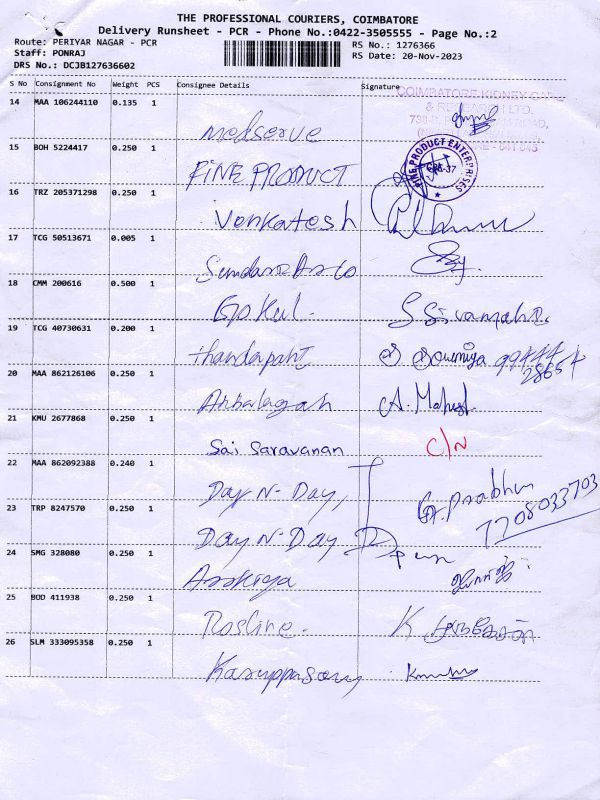 THE PROFESSIONAL COURIERS, COIMBATORE
Delivery Runsheet - PCR - Phone No.:0422-3505555 - Page No.:2
Route: PERIYAR NAGAR - PCR
Staff: PONRAJ
DRS No.: DCJB127636602
RS No.: 1276366
RS Date: 20-Nov-2023
S No Consignment No Weight PCS Consignee Details Signature
COIMBATORE KIDNEY CARE
& RESEARCH LTD.
14 MAA 106244110 0.135 1 medserve
15 BOH 5224417 0.250 1 FINE PRODUCT
FINE PRODUCT ENTERPRISES
16 TRZ 205371298 0.250 1 Venkatesh
17 TCG 50513671 0.005 1
18 CMM 200616 0.500 1 Gokul.
19 TCG 40730631 0.200 1 thandapani S Sowmiya 99444
20 MAA 862126106 0.250 1 Anbalagan A. Mahesh
21 KMU 2677868 0.250 1 Sai Saravanan C/N
22 MAA 862092388 0.240 1 Day N-Day, G. Prabhu
7708033703
23 TRP 8247570 0.250 1 Day N-Day
24 SMG 328080 0.250 1
25 BOD 411938 0.250 1 Rosline. K
26 SLM 333095358 0.250 1 Karuppasamy